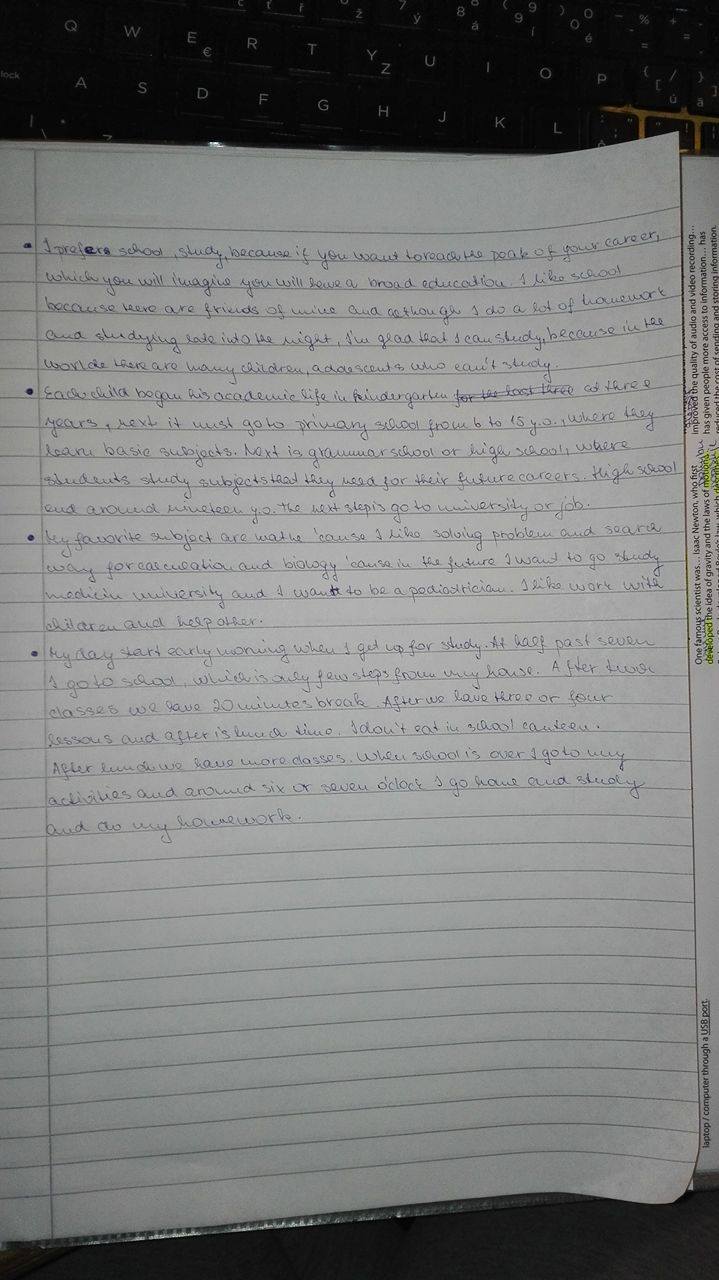 Q W E R T Y Z U I O P
€
lock A S D F G H J K L
• I prefers school, study, because if you want to reach the peak of your career,
which you will imagine you will have a broad education. I like school
because there are friends of mine and although I do a lot of homework
and studying late into the night, I'm glad that I can study, because in the
worlde there are many children, adolescents who can't study.
• Each child began his academic life in kindergarten for the last three at three
years, next it must go to primary school from 6 to 15 y.o., where they
learn basic subjects. Next is grammar school or high school, where
students study subjects that they need for their future careers. High school
end around nineteen y.o. The next step is go to university or job.
• My favorite subject are maths 'cause I like solving problem and search
way for calculation and biology 'cause in the future I want to go study
medicin university and I want to be a pediatrician. I like work with
children and help other.
• My day start early morning when I get up for study. At half past seven
I go to school, which is only few steps from my house. After two
classes we have 20 minutes break. After we have three or four
lessons and after is lunch time. I don't eat in school canteen.
After lunch we have more classes. When school is over I go to my
activities and around six or seven o'clock I go home and study
and do my homework.
One famous scientist was... Isaac Newton, who first
developed the idea of gravity and the laws of motions
improved the quality of audio and video recording...
has given people more access to information... has
reduced the cost of sending and storing information.
laptop / computer through a USB port.